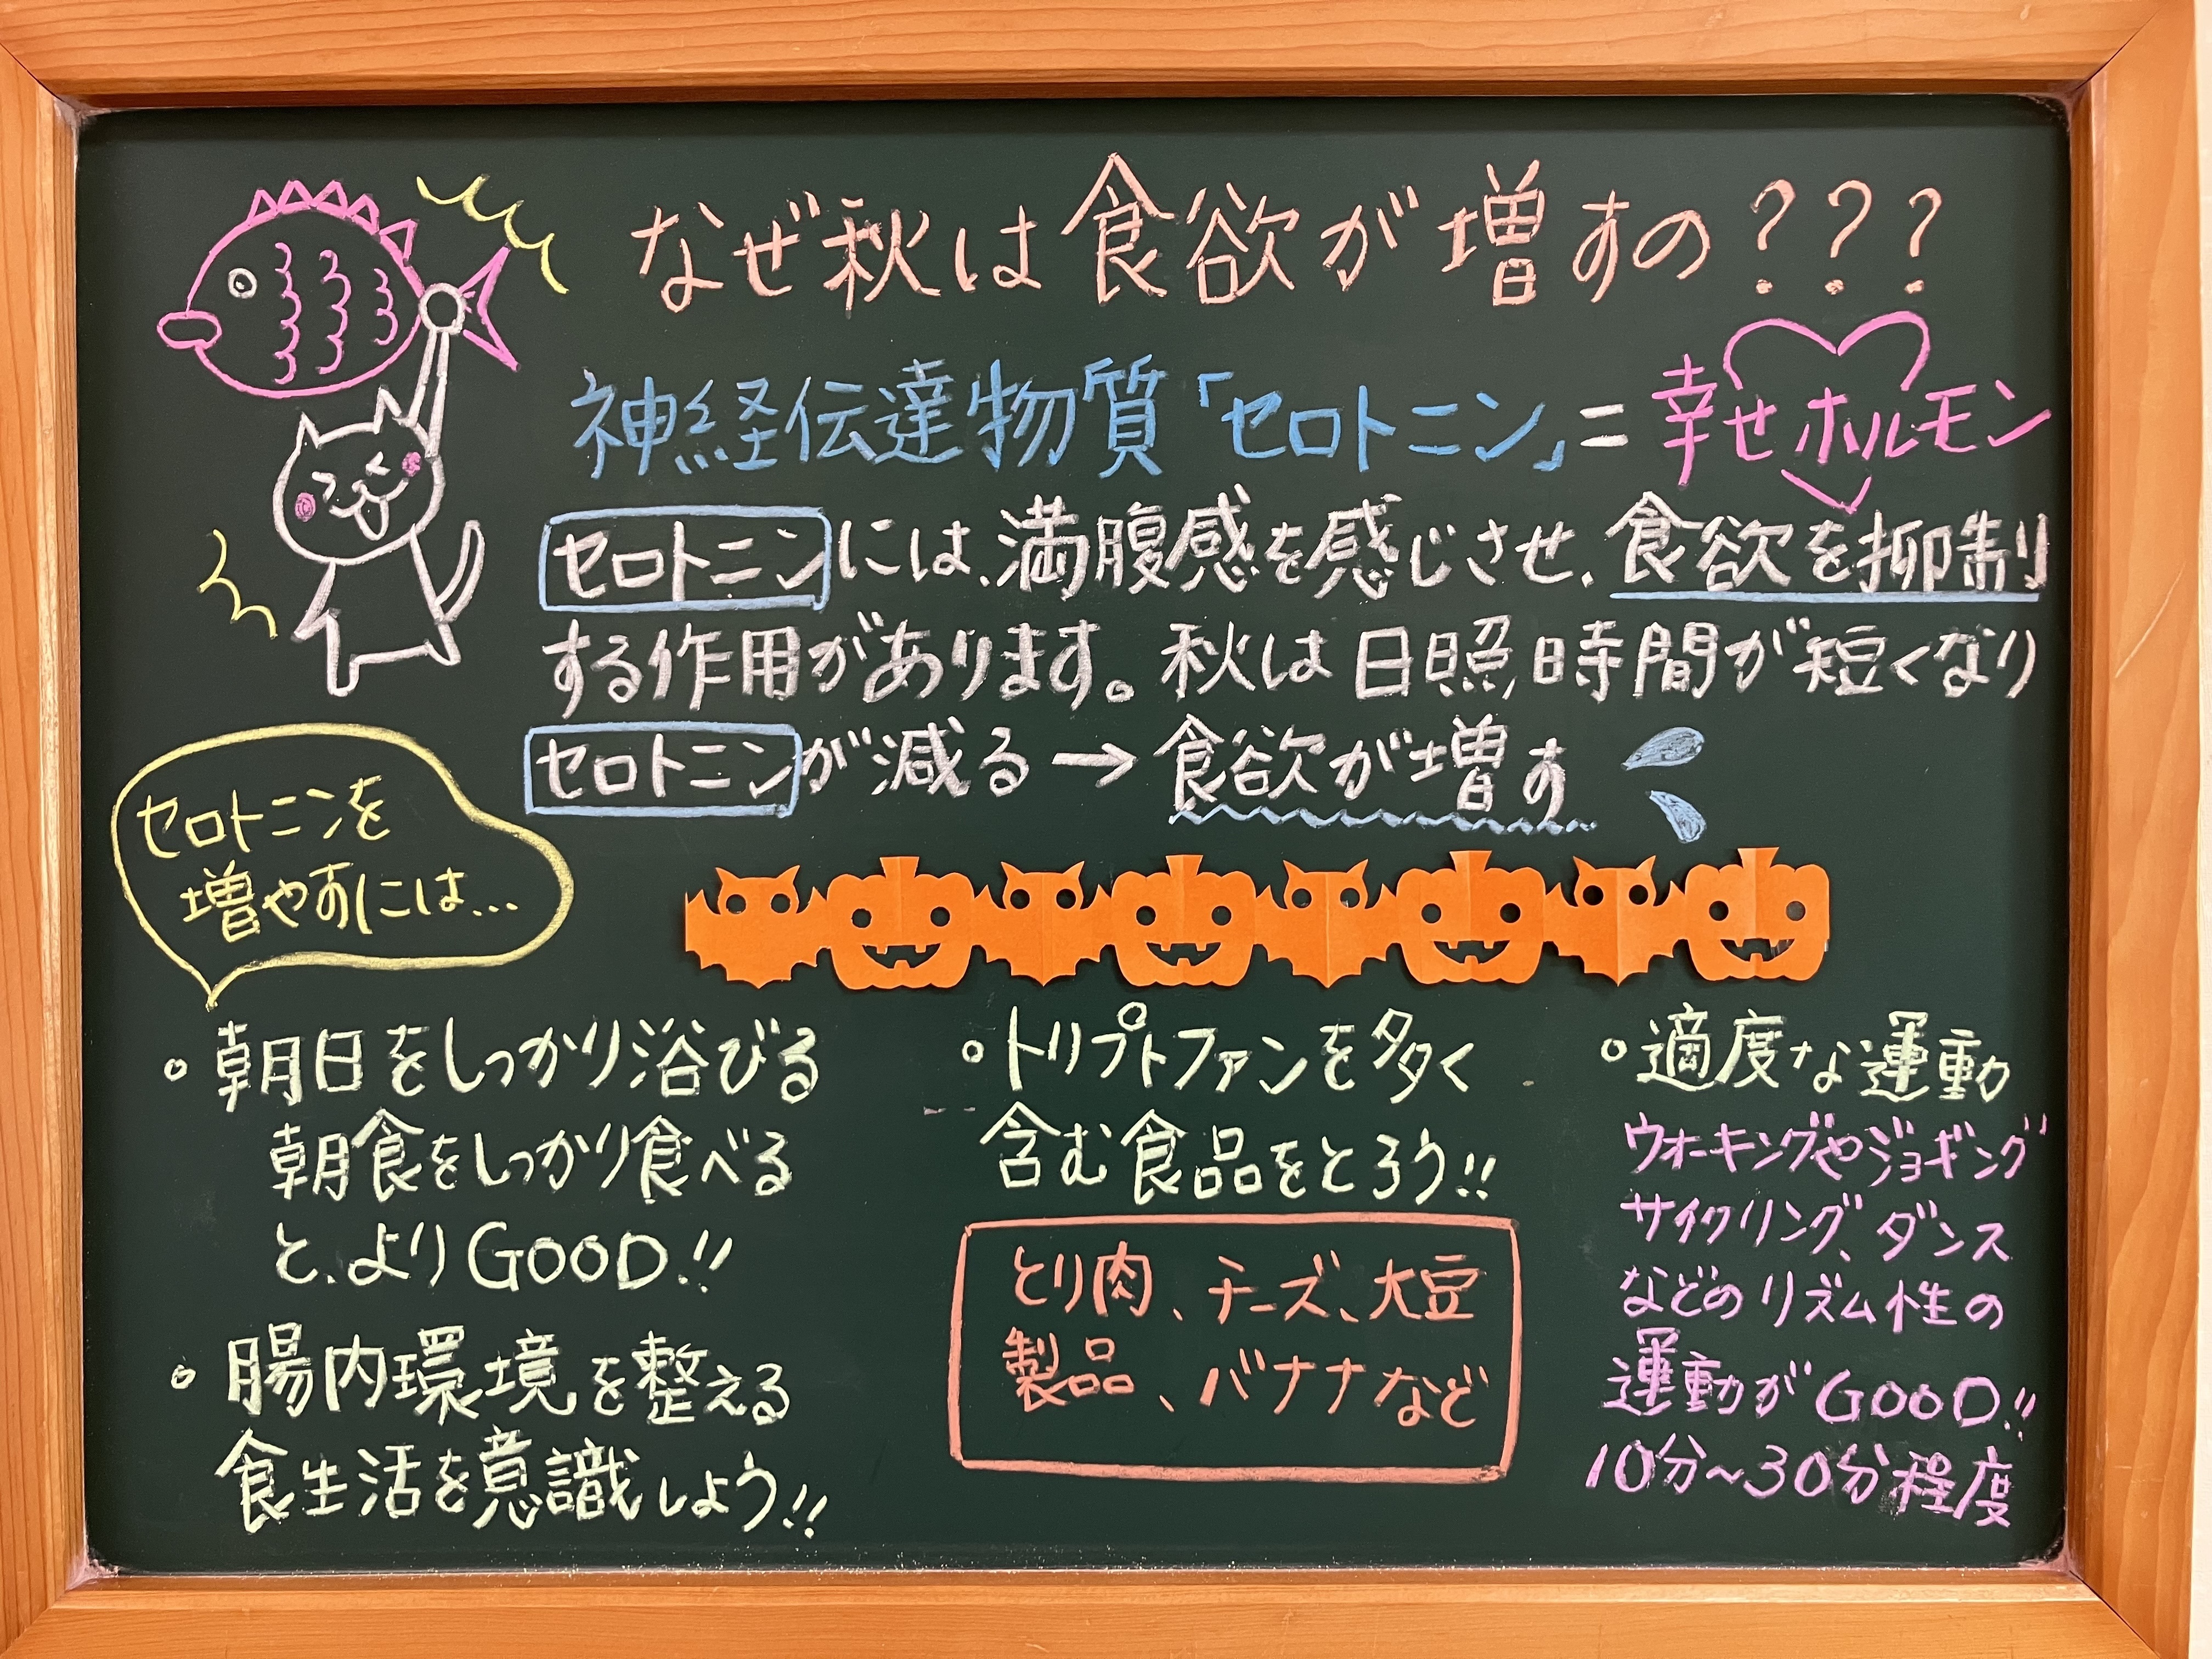 なぜ秋は食欲が増すの???
神経伝達物質「セロトニン」=幸せホルモン
セロトニンには、満腹感を感じさせ、食欲を抑制
する作用があります。秋は日照時間が短くなり
セロトニンが減る→食欲が増す
セロトニンを
増やすには...
・朝日をしっかり浴びる
朝食をしっかり食べる
と、よりGOOD!!
・腸内環境を整える
食生活を意識しよう!!
・トリプトファンを多く
含む食品をとろう!!
とり肉、チーズ、大豆
製品、バナナなど
・適度な運動
ウォーキングやジョギング
サイクリング、ダンス
などのリズム性の
運動がGOOD!!
10分~30分程度